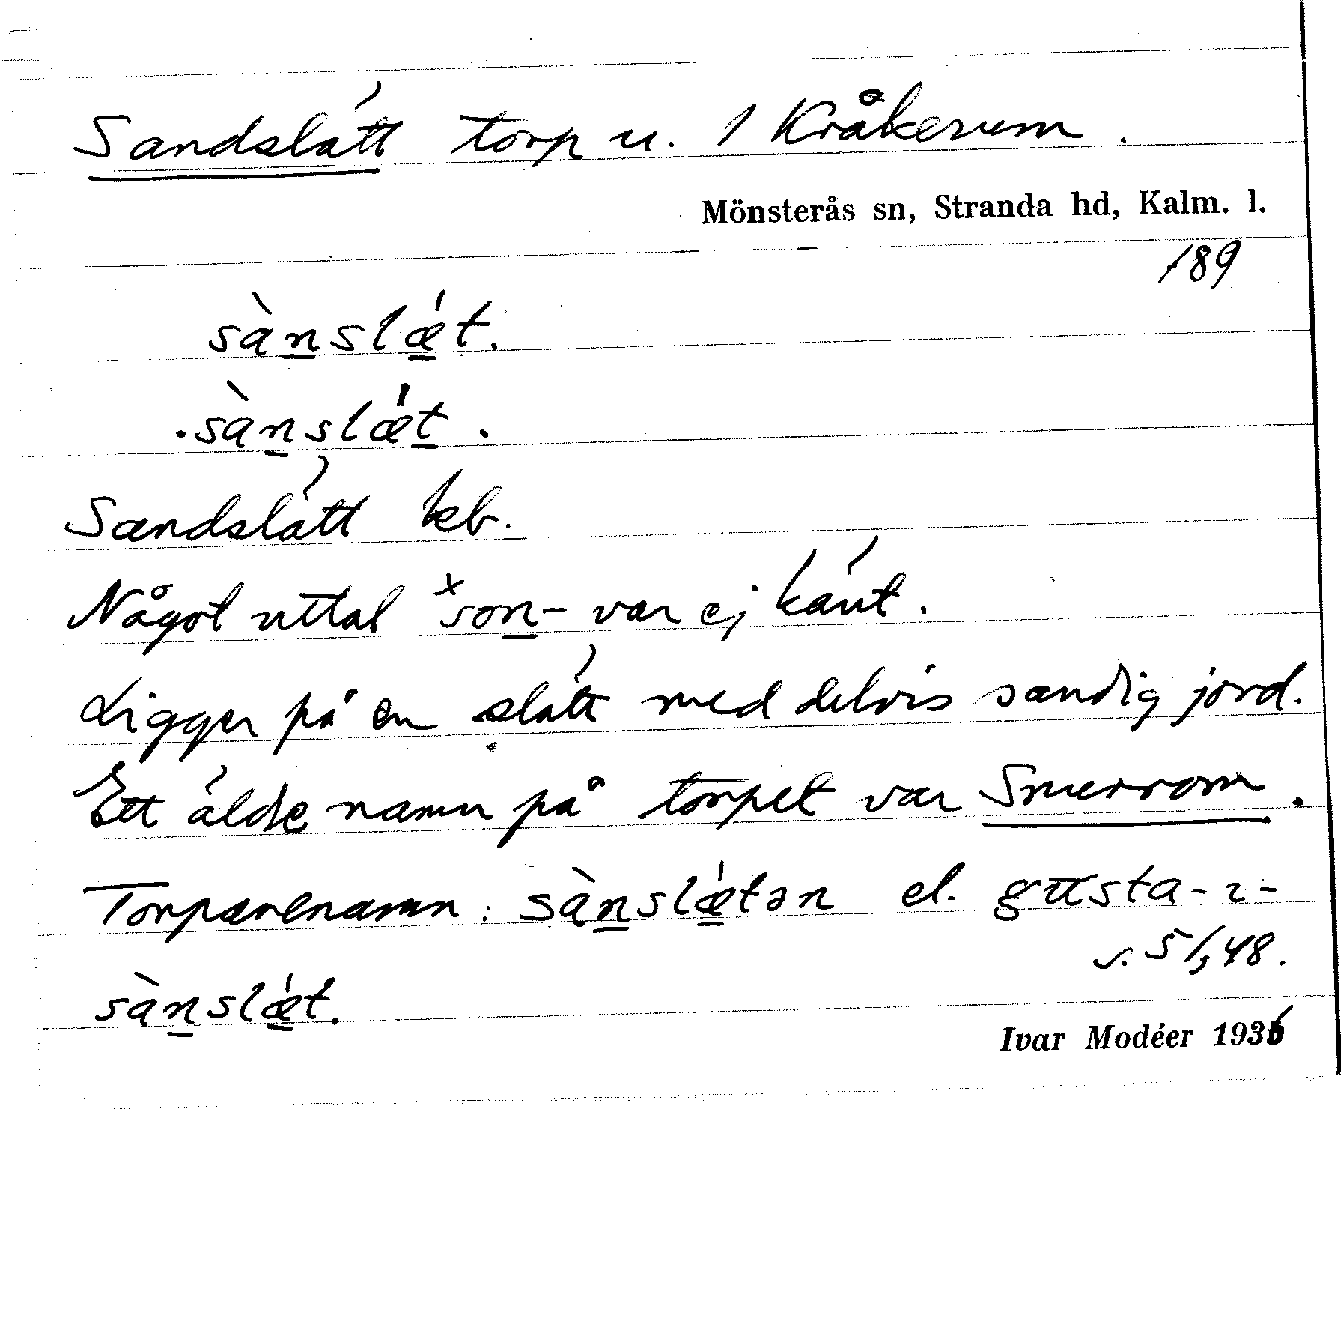 Sandslätt torp u. 1 Kråkerum.
Mönsterås sn, Stranda hd, Kalm. l.
189
sànslǽt.
sànslǽt.
Sandslätt kb.
Något uttal ˣson- var ej känt.
Ligger på en slätt med delvis sandig jord.
Ett äldre namn på torpet var Smurrom.
Torparenamn: sànslǽtən el. gusta-ı-
sànslǽt.
s. 51,48.
Ivar Modéer 1936